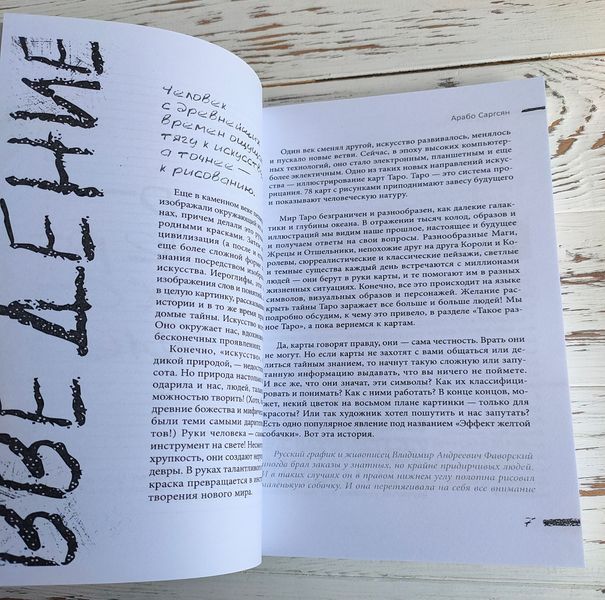 ВВЕДЕНИЕ
человек
с древнейших
времен ощущ
тягу к искусст
а точнее —
к рисованию.
Еще в каменном веке
изображали окружающ
нах, причем делали это
родными красками. Зате
цивилизация (а после и
еще более сложной фор
знания посредством изоб
искусства. Иероглифы,
изображения слов и поня
в целую картинку, расска
истории и в то же время
домые тайны. Искусство
Оно окружает нас, вдохно
бесконечных проявлени
Конечно, «искусство»,
дикой природой, — недос
сота. Но природа настоя
одарила и нас, людей, та
можностью творить! (Хот
древние божества и мифи
были теми самыми дарит
тов!) Руки человека — са
инструмент на свете! Несм
хрупкость, они создают
девры. В руках талантлив
краска превращается в инс
творения нового мира.
Арабо Саргсян
Один век сменял другой, искусство развивалось, менялось
и пускало новые ветви. Сейчас, в эпоху высоких компьютер-
ных технологий, оно стало электронным, планшетным и еще
более эклектичным. Одно из таких новых направлений искус-
ства — иллюстрирование карт Таро. Таро — это система про-
рицания. 78 карт с рисунками приподнимают завесу будущего
и показывают человеческую натуру.
Мир Таро безграничен и разнообразен, как далекие галак-
тики и глубины океана. В отражении тысяч колод, образов и
иллюстраций мы видим наше прошлое, настоящее и будущее
и получаем ответы на свои вопросы. Разнообразные Маги,
Жрецы и Отшельники, непохожие друг на друга Короли и Ко-
ролевы, сюрреалистические и классические пейзажи, светлые
и темные существа каждый день встречаются с миллионами
людей — они берут в руки карты, и те помогают им в разных
жизненных ситуациях. Конечно, все это происходит на языке
символов, визуальных образов и персонажей. Желание рас-
крыть тайны Таро заражает все больше и больше людей! Мы
подробно обсудим, к чему это привело, в разделе «Такое раз-
ное Таро», а пока вернемся к картам.
Да, карты говорят правду, они — сама честность. Врать они
не могут. Но если карты не захотят с вами общаться или де-
литься тайнами, они начнут такую сложную или запу-
танную информацию выдавать, что вы ничего не поймете.
И все же, что они значат, эти символы? Как их классифици-
ровать и понимать? Как с ними работать? В конце концов, мо-
жет, некий цветок на восьмом плане картинки — только для
красоты? Или так художник хотел пошутить и нас запутать?
Есть одно популярное явление под названием «Эффект желтой
собачки». Вот эта история.
Русский график и живописец Владимир Андреевич Фаворский
иногда брал заказы у знатных, но крайне придирчивых людей.
И в таких случаях он в правом нижнем углу полотна рисовал
маленькую собачку. И она перетягивала на себя все внимание
7